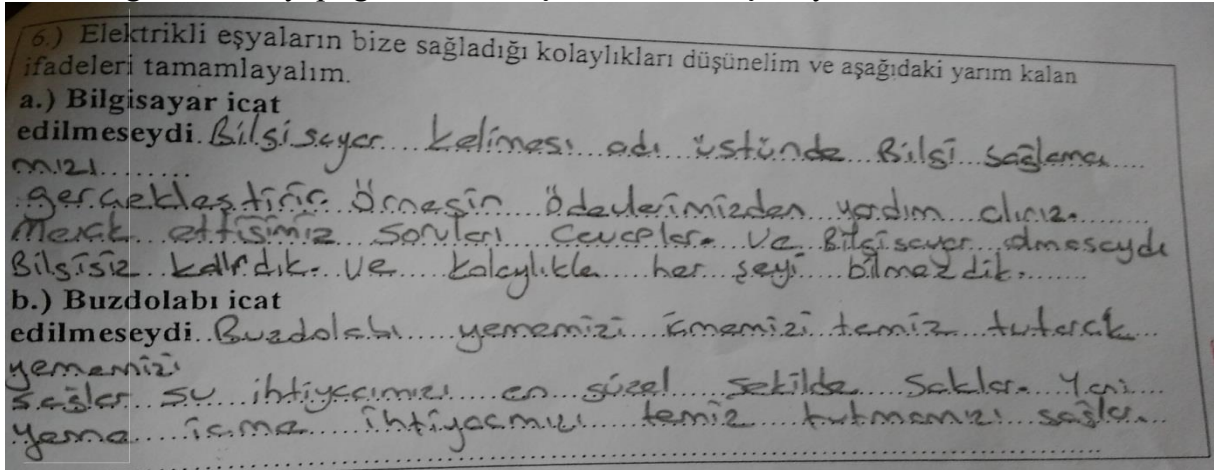 6.) Elektrikli eşyaların bize sağladığı kolaylıkları düşünelim ve aşağıdaki yarım kalan
ifadeleri tamamlayalım.
a.) Bilgisayar icat
edilmeseydi. Bilgisayar.... kelimesi...adı...üstünde...Bilgi...sağlama....
mızı.........
gerçekleştirir. Örneğin....Ödevlerimizden...yardım...alırız.........
Merak...ettiğimiz...soruları....cevaplar...ve...Bilgisayar...olmasaydı
Bilgisiz...kalırdık. ve....kolaylıkla....her...şeyi...bilmezdik.........
b.) Buzdolabı icat
edilmeseydi..Buzdolabı......yememizi...içmemizi..temiz...tutarak...
yememizi
sağlar...su...ihtiyacımızı....en...güzel....şekilde....Saklar. Yani....
yeme.....içme.....ihtiyacmızı.....temiz....tutmamızı...sağlar....